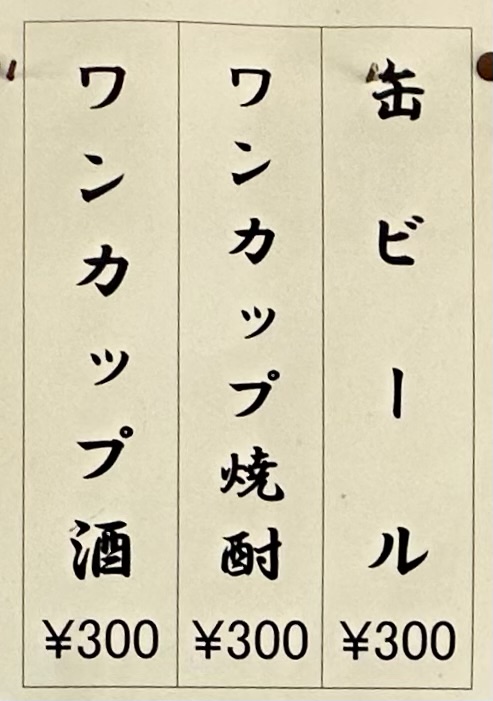 缶ビール
¥300
ワンカップ焼酎
¥300
ワンカップ酒
¥300